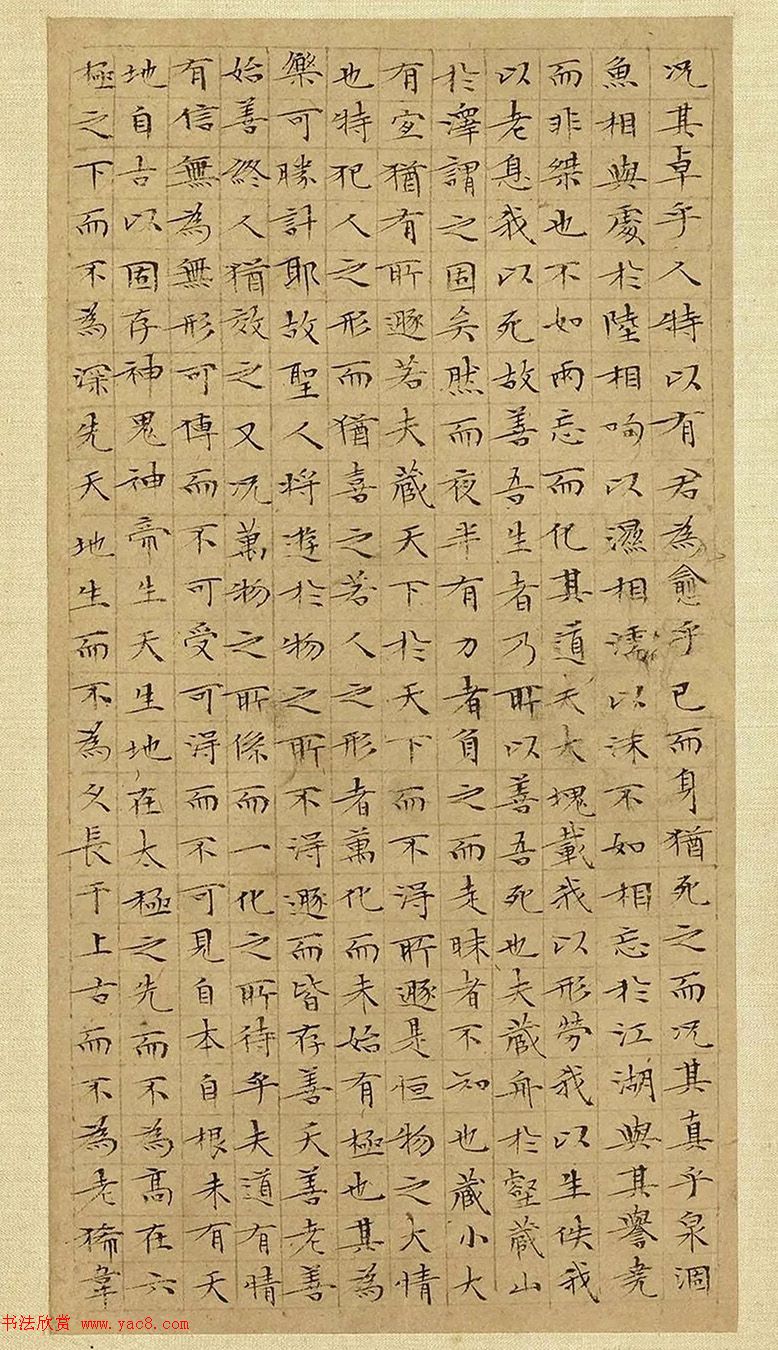 况其卓乎人特以有君為愈乎已而身猶死之而况其真乎泉涸
魚相與處於陸相呴以濕相濡以沫不如相忘於江湖與其譽堯
而非桀也不如兩忘而化其道夫大塊載我以形勞我以生佚我
以老息我以死故善吾生者乃所以善吾死也夫藏舟於壑藏山
於澤謂之固矣然而夜半有力者負之而走昧者不知也藏小大
有宜猶有所遯若夫藏天下於天下而不得所遯是恒物之大情
也特犯人之形而猶喜之若人之形者萬化而未始有極也其為
樂可勝計耶故聖人將遊於物之所不得遯而皆存善夭善老善
始善終人猶效之又况萬物之所係而一化之所待乎夫道有情
有信無為無形可傳而不可受可得而不可見自本自根未有天
地自古以固存神鬼神帝生天生地在太極之先而不為高在六
極之下而不為深先天地生而不為久長于上古而不為老狶韋
书法欣赏 www.yac8.com